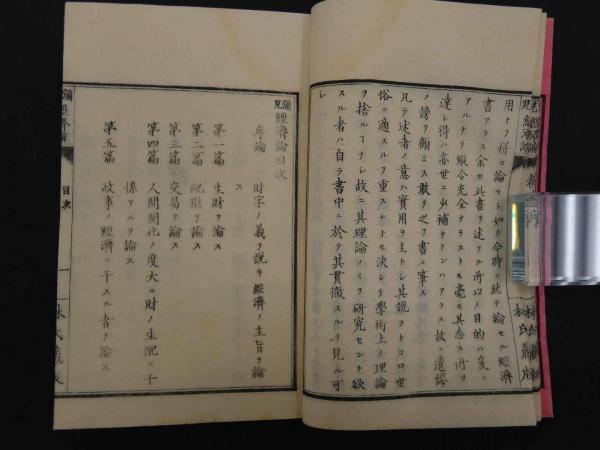 用トヲ併セ論セシ如ク今時ニ就テ論セル經濟
書アラス余カ此書ヲ述フル所以ノ目的ハ爰ニ
アルナリ縱令完全ナラストモ毫モ其志ス所ヲ
達シ得ハ亦世ニ少補ナクンハアラス故ニ
ノ謗ヲ顧ミス敢テ之ヲ書ニ筆ス
凡テ述者ノ意ハ實用ヲ主トシ其說クトコロ世
俗ニ適スルヲ重ストモ決シテ學術上ノ理論
ヲ捨ルヿナシ故ニ其理論ノミヲ研究セント欲
スル者ハ自ラ書中ニ於テ其貫徹スルヲ見ル可
シ
林氏藏版
彌兒經濟論目次
序論 財字ノ義ヲ說キ經濟ノ主旨ヲ論
ス
第一篇 生財ヲ論ス
第二篇 配財ヲ論ス
第三篇 交易ヲ論ス
第四篇 人間開化ノ度大ニ財ノ生配ニ干
係アルヲ論ス
第五篇 政事ノ經濟ニ干スル者ヲ論ス
目次 一